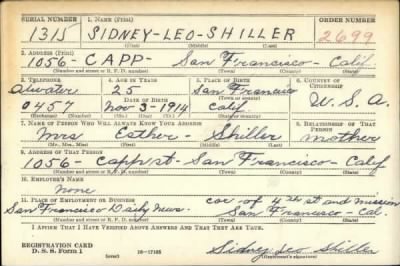 SERIAL NUMBER 1. NAME (Print) ORDER NUMBER
1315 SIDNEY-LEO-SHILLER 2699
(First) (Middle) (Last)
2. ADDRESS (Print)
1056- CAPP- San Francisco- Calif
(Number and street or R. F. D. number) (Town) (County) (State)
3. TELEPHONE 4. AGE IN YEARS 5. PLACE OF BIRTH 6. COUNTRY OF CITIZENSHIP
Atwater 25 San Francisco
DATE OF BIRTH (Town or county) U. S. A.
0457 Nov-3-1914 Calif
(Exchange) (Number) (Mo.) (Day) (Yr.) (State or country)
7. NAME OF PERSON WHO WILL ALWAYS KNOW YOUR ADDRESS 8. RELATIONSHIP OF THAT PERSON
Mrs Esther- Shiller mother
(Mr., Mrs., Miss) (First) (Middle) (Last)
9. ADDRESS OF THAT PERSON
1056- Capp st- San Francisco- Calif
(Number and street or R. F. D. number) (Town) (County) (State)
10. EMPLOYER'S NAME
None
11. PLACE OF EMPLOYMENT OR BUSINESS cor of 4th st and mission
San Francisco Daily News. San Francisco- Cal.
(Number and street or R. F. D. number) (Town) (County) (State)
I AFFIRM THAT I HAVE VERIFIED ABOVE ANSWERS AND THAT THEY ARE TRUE.
REGISTRATION CARD
D. S. S. Form 1 (over) 16-17105 Sidney Leo Shiller
(Registrant's signature)